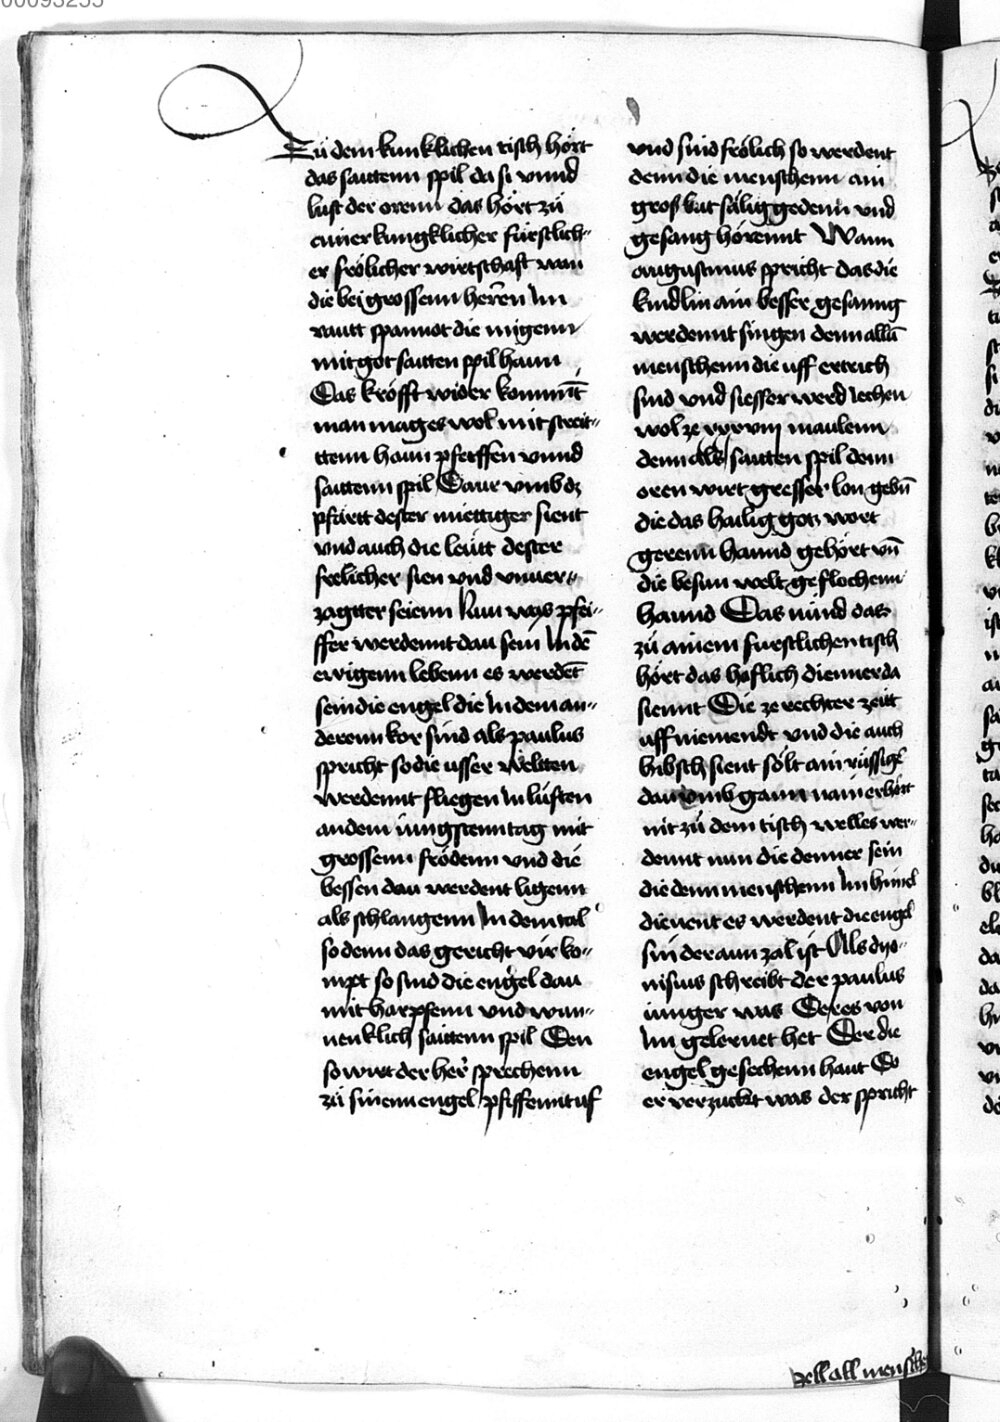 00093255
Zu dem kunklichen tisch hört
das sauttenn spil da si vnnd
lust der orenn das hört zu
einer kungklicher fürstlich-
er frölicher wirtschaft wan
die bei grossenn herren Im
rautt spannot die mügenn
mit got saitten spil haun
Das kröfft wider kommēt
man mag es wol mit streit-
tenn haun pfeiffen vnnd
sauttenn spil Daur vmb dz
pfärtt dester miettiger sient
vnd auch die leütt dester
frelicher sien vnd vnuer-
zagtter seienn Nun was pfei-
ffer werdennt dau sein In dē
ewigenn lebenn es werdēt
sein die engel die In dem an-
derenn kor sind als paulus
spricht so die vsser welten
werdennt fliegen In lüften
an dem iungstenn tag mit
grossenn frödenn vnd die
bessen dau werdent ligenn
als schlangenn In dem tal
so denn das gericht vir ko-
mpt so sind die engel dau
mit harpfenn vnd wun-
nenklich saittenn spil Den
so wirt der her sprechenn
zu sinenn engel pfiffennt uf
vnd sind frölich so werdent
denn die menschenn ain
gros kat sälig gedenn vnd
gesang hörennt Wann
augustinus spricht das die
kindlin ain besser gesanng
werdennt singen denn allū
menschenn die uff ertrich
sind vnd siesser werd lechen
wol ze maulenn
denn alls sautten spil denn
oren wirt gresser lon gebn̄
die das hailig gotz wort
gerenn haund gehört vn̄
die besun welt geflochenn
haund Das nünd das
zu ainem fürstlichen tisch
hört das hoflich diennerda
siennt Die ze rechter zeitt
uff niemendt vnd die auch
hibsch sient sölt ain rüssige
dau vmb gann nain er hört
nit zu dem tisch welles wer-
dennt nun die denner sein
die denn menschenn Im himel
dienent es werdent die engel
sin der aun zal ist Als dyo-
nisius schreibt der paulus
iunger was Der es von
Im gelernet het Der die
engel gesechenn haut Do
er verzuckt was der spricht
zell all mensche